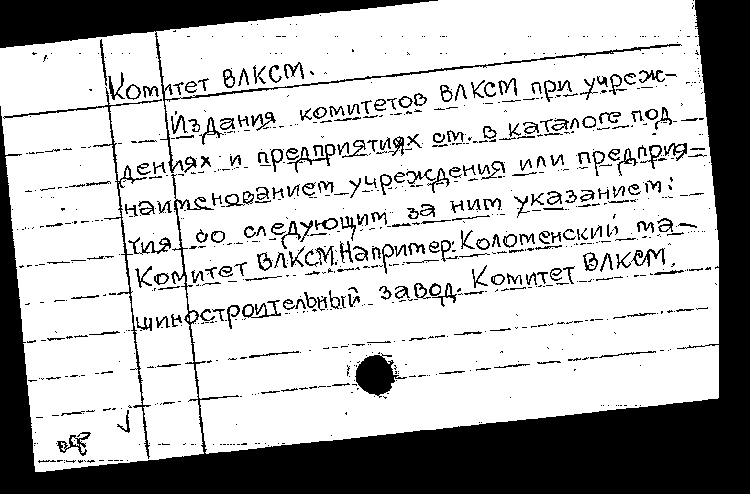 Комитет ВЛКСМ.
Издания комитетов ВЛКСМ при учреж-
дениях и предприятиях см. в каталоге под
наименованием учреждения или предприя-
тия со следующим за ним указанием:
Комитет ВЛКСМ. Например: Коломенский ма-
шиностроительный завод. Комитет ВЛКСМ.